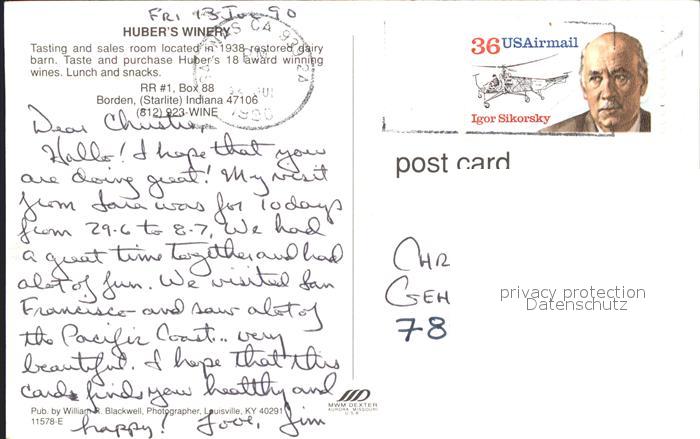 FRI 13 JUL 90
HUBER'S WINERY
Tasting and sales room located in 1938 restored dairy
barn. Taste and purchase Huber's 18 award winning
wines. Lunch and snacks.
RR #1, Box 88
Borden, (Starlite) Indiana 47106
(812) 923-WINE
CA
1990
Dear Christine,
Hallo! I hope that you
are doing great! My visit
from Lara was for 10 days
from 29.6 to 8.7. We had
a great time together and had
alot of fun. We visited San
Francisco and saw alot of
the Pacific Coast... very
beautiful. I hope that this
card finds you healthy and
happy! Love, Jim
Pub. by William R. Blackwell, Photographer, Louisville, KY 40291
11578-E
MWM DEXTER
AURORA, MISSOURI
U.S.A.
36 USAirmail
Igor Sikorsky
post card
CHR
GEH
78
privacy protection
Datenschutz